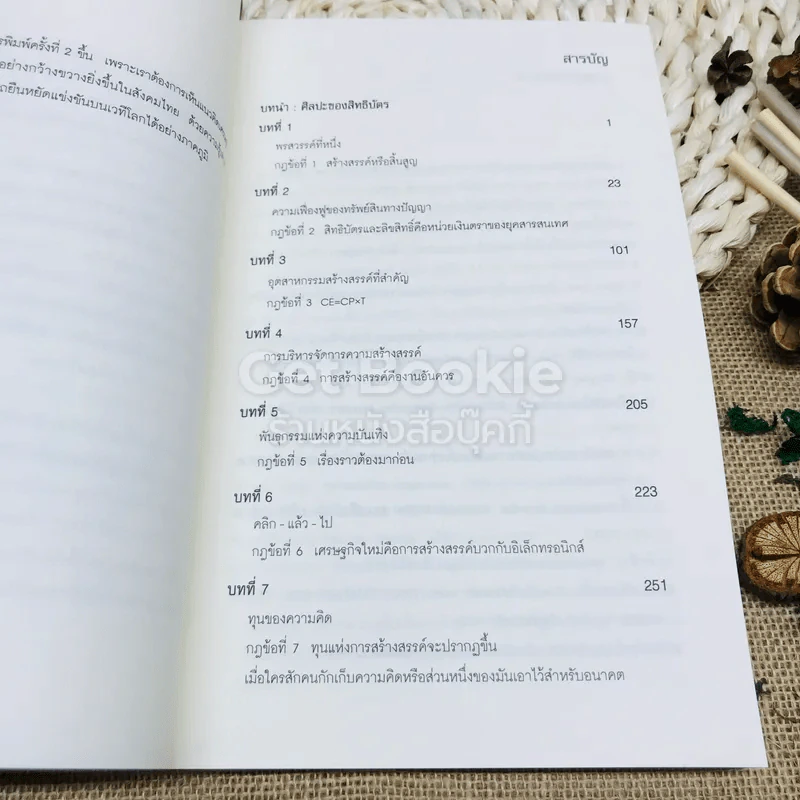 รพิมพ์ครั้งที่ 2 ขึ้น เพราะเราต้องการเห็นแนวคิด
อย่างกว้างขวางยิ่งขึ้นในสังคมไทย ด้วยความ
ถยืนหยัดแข่งขันบนเวทีโลกได้อย่างภาคภูมิ
สารบัญ
บทนำ : ศิลปะของสิทธิบัตร
บทที่ 1 1
พรสวรรค์ที่หนึ่ง
กฎข้อที่ 1 สร้างสรรค์หรือสิ้นสูญ
บทที่ 2 23
ความเฟื่องฟูของทรัพย์สินทางปัญญา
กฎข้อที่ 2 สิทธิบัตรและลิขสิทธิ์คือหน่วยเงินตราของยุคสารสนเทศ
บทที่ 3 101
อุตสาหกรรมสร้างสรรค์ที่สำคัญ
กฎข้อที่ 3 CE=CP×T
บทที่ 4 157
การบริหารจัดการความสร้างสรรค์
กฎข้อที่ 4 การสร้างสรรค์คืองานอันควร
Get Bookie
บทที่ 5 205
ร้านหนังสือบุ๊คกี้
พันธุกรรมแห่งความบันเทิง
กฎข้อที่ 5 เรื่องราวต้องมาก่อน
บทที่ 6 223
คลิก - แล้ว - ไป
กฎข้อที่ 6 เศรษฐกิจใหม่คือการสร้างสรรค์บวกกับอิเล็กทรอนิกส์
บทที่ 7 251
ทุนของความคิด
กฎข้อที่ 7 ทุนแห่งการสร้างสรรค์จะปรากฏขึ้น
เมื่อใครสักคนกักเก็บความคิดหรือส่วนหนึ่งของมันเอาไว้สำหรับอนาคต